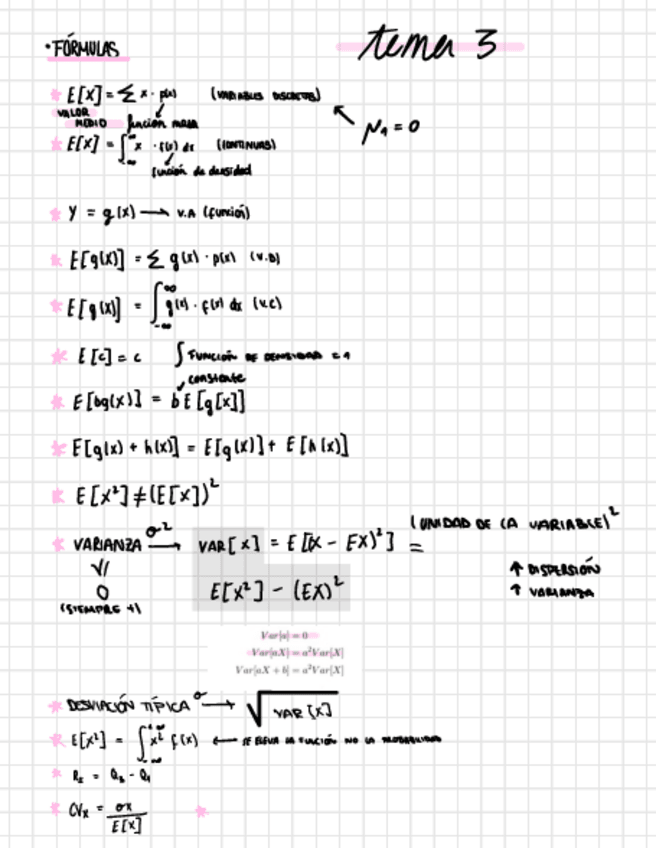 tema 3
• FÓRMULAS
* E[X] = ∑ x · p(x) (VARIABLES DISCRETAS)
VALOR MEDIO función masa
μ₁ = 0
* E[X] = ∫_{-∞}^{∞} x · f(x) dx (CONTINUAS)
función de densidad
* Y = g(x) → V.A (función)
* E[g(x)] = ∑ g(x) · p(x) (V.D)
* E[g(x)] = ∫_{-∞}^{∞} g(x) · f(x) dx (V.C)
* E[c] = c ∫ FUNCIÓN DE DENSIDAD = 1
constante
* E[bg(x)] = b E[g[x]]
* E[g(x) + h(x)] = E[g(x)] + E[h(x)]
* E[X²] ≠ (E[X])²
(UNIDAD DE LA VARIABLE)²
* VARIANZA σ² → VAR[X] = E[(X − EX)²] =
E[X²] − (EX)²
V/
0
(SIEMPRE +)
↑ DISPERSIÓN
↑ VARIANZA
Var[a] = 0
Var[aX] = a²Var[X]
Var[aX + b] = a²Var[X]
* DESVIACIÓN TÍPICA σ → √VAR[X]
* E[X²] = ∫_{-∞}^{+∞} x² f(x) ← SE ELEVA LA FUNCIÓN NO LA PROBABILIDAD
* R_I = Q₃ - Q₁
* CVₓ = σx / E[X]
*